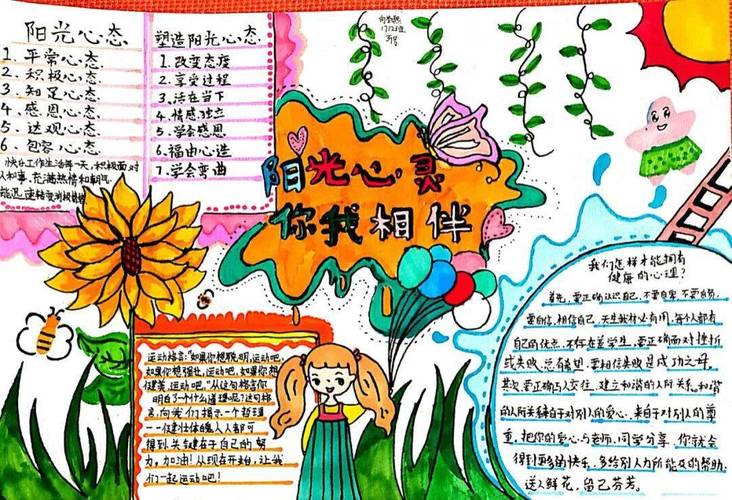 阳光心态
1. 平常心态
2. 积极心态
3. 知足心态
4. 感恩心态
5. 达观心态
6. 包容心态
快乐工作生活每一天,积极面对
人和事,充满热情和朝气
塑造阳光心态
1. 改变态度
2. 享受过程
3. 活在当下
4. 情感独立
5. 学会感恩
6. 福由心造
7. 学会弯曲
阳光心灵
你我相伴
运动格言:"如果你想聪明,运动吧,
如果你想强壮,运动吧,如果你想
健美,运动吧。"从这句格言你
明白了个什么道理呢?这句格
言,向我们揭示一个哲理
——健壮体魄人人都可
得到关键在于自己的努
力。加油!从现在开始,让我
们一起运动吧!
我们怎样才能拥有
健康的心理?
首先,要正确认识自己,不要自卑,不要自负,
要自信,相信自己,天生我材必有用,每个人都有
自己的优点,不存在差学生,要正确面对挫折
或失败,总能望,要相信失败是成功之母。
其次,要正确与人交往,建立和谐的人际关系。和谐
的人际关系来自于对别人的爱心,来自于对别人的尊
重,把你的爱心与老师,同学分享,你就会
得到更多的快乐,多给别人力所能及的帮助,
送人鲜花,留己芬芳。